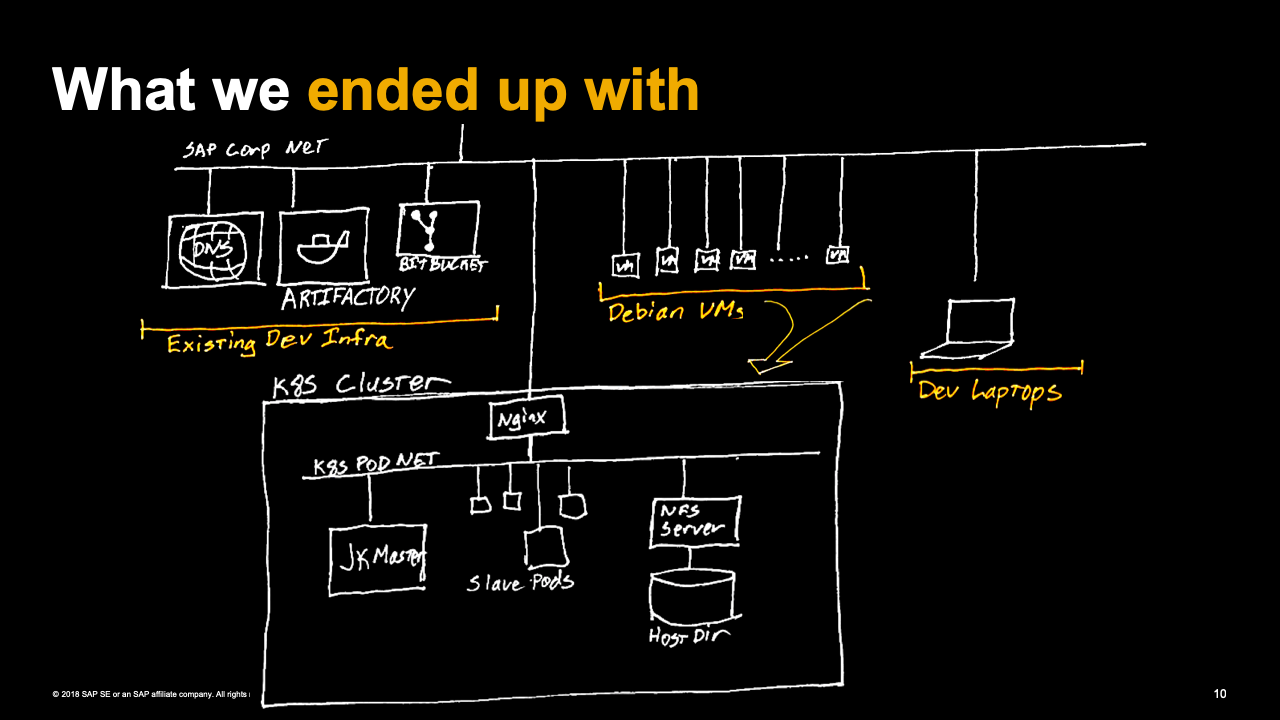 What we ended up with
SAP Corp NET
DNS
ARTIFACTORY
BITBUCKET
VM VM VM VM ..... VM
Debian VMs
Existing Dev Infra
Dev Laptops
K8S Cluster
Nginx
K8S POD NET
JK Master
Slave Pods
NFS
Server
Host Dir
© 2018 SAP SE or an SAP affiliate company. All rights
10